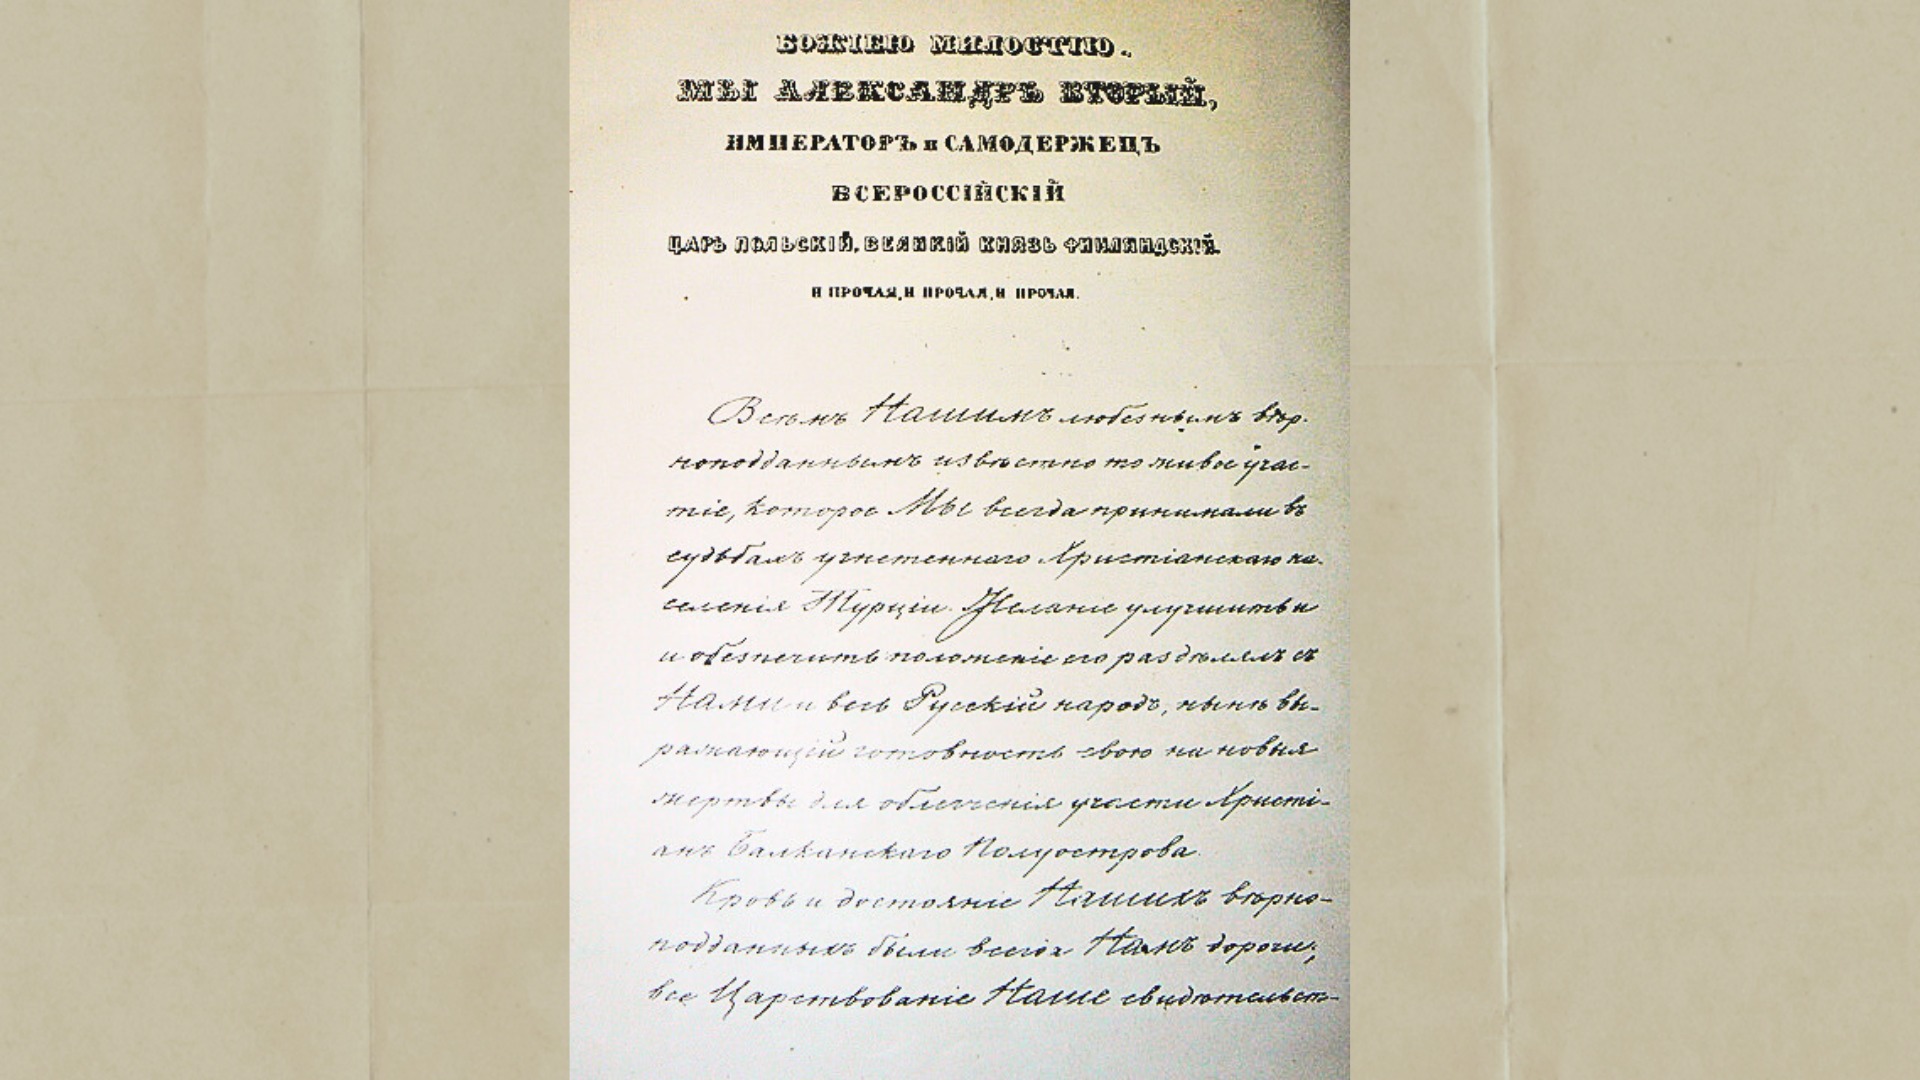 БОЖІЕЮ МИЛОСТІЮ.
МЫ АЛЕКСАНДРЪ ВТОРЫЙ,
ИМПЕРАТОРЪ и САМОДЕРЖЕЦЪ
ВСЕРОССІЙСКІЙ
ЦАРЬ ПОЛЬСКІЙ, ВЕЛИКІЙ КНЯЗЬ ФИНЛЯНДСКІЙ.
И ПРОЧАЯ, И ПРОЧАЯ, И ПРОЧАЯ.
Всѣмъ Нашимъ любезнымъ вѣр-
ноподданнымъ извѣстно то живое учас-
тіе, которое Мы всегда принимали въ
судьбахъ угнетеннаго Христіанскаго на-
селенія Турціи. Желаніе улучшить и
и обезпечить положеніе его раздѣлялъ съ
Нами и весь Русскій народъ, нынѣ вы-
ражающій готовность свою на новыя
жертвы для облегченія участи Христі-
анъ Балканскаго Полуострова.
Кровь и достояніе Нашихъ вѣрно-
подданныхъ были всегда Намъ дороги;
все Царствованіе Наше свидѣтельст-